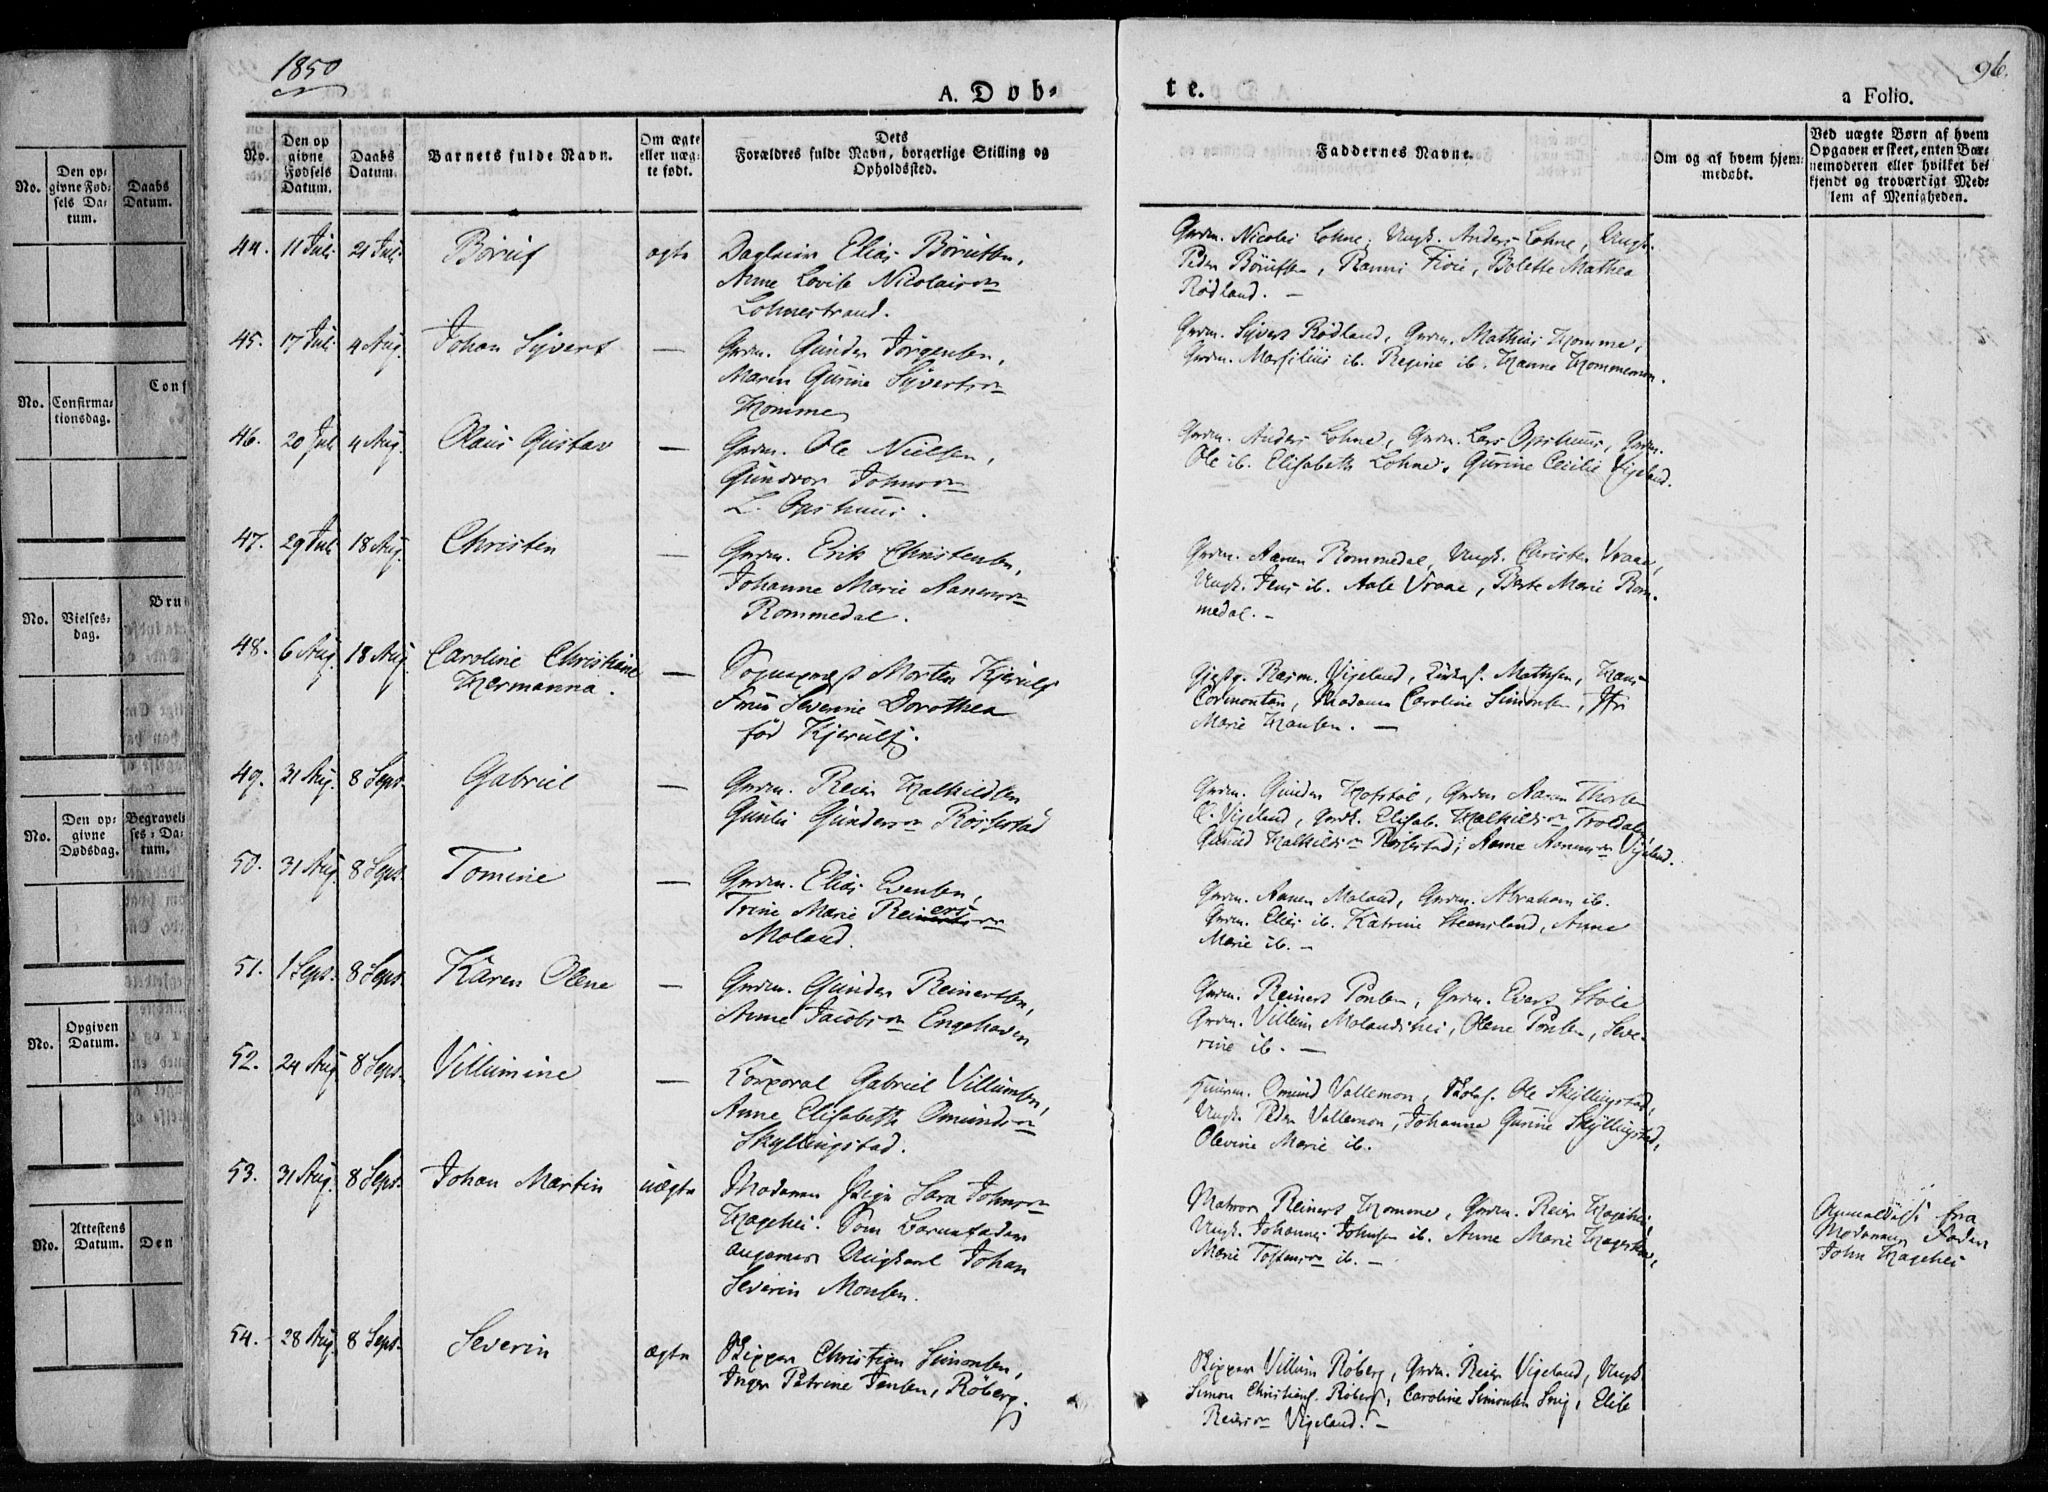 1850
96.
A. Døb-
te.
a Folio.
No.
Den op
givne
Fødsels
Datum.
Daabs
Datum.
Barnets fulde Navn.
Om ægte
eller uæg-
te født.
Dets
Forældres fulde Navn, borgerlige Stilling og
Opholdssted.
Faddernes Navne.
Om og af hvem hjem-
medøbt.
Ved uægte Børn af hvem
Opgaven er skeet, enten Bar-
nemoderen eller hvilket be-
kjendt og troværdigt Med-
lem af Menigheden.
44. 11 Juli 21 Juli Børuf ægte
Elias Børufsen,
Anne Lovise Nicolaisdr
Lohnestrand.
Grdm. Nicolai Lohne, Ungk. Anders Lohne, Ungk.
Peder Børufsen, Fioie, Bolette Mathea
Rødland. -
45. 17 Juli 4 Aug. Johan Syvert -
Grdm. Gunder Jørgensen,
Maren Gurine Syvertsdr
Homme
Grdm. Syvert Rødland, Grdm. Mathias Homme,
Grdm. Marsilius ib. Regine ib. Hanne Hommemon.
46. 20 Jul 4 Aug. Olaus Gustav -
Grdm. Ole Nielsen,
Gunvor Johnsdr
L. Opshuus.
Grdm. Anders Lohne, Grdm. Lars Opshuus, Grdm.
Ole ib. Elisabeth Lohne, Gurine Cecilie Vigeland.
47. 29 Juli 18 Aug. Christen -
Grdm. Erik Christensen,
Johanne Marie Aanensdr
Rommedal.
Grdm. Aanen Rommedal, Ungk. Christen Vraae,
Ungk. Jens ib. Aale Vraae, Berte Marie Rom-
medal. -
48. 6 Aug. 18 Aug. Caroline Christiane
Hermanna. -
Sognepræst Morten Kjerulf
Frue Severine Dorothea
fød Kjerulf.
Rasm. Vigeland, Mathisen, Hans
Cormontan, Madame Caroline Simonsen, Jfr
Marie Hansen. -
49. 31 Aug. 8 Sept. Gabriel -
Grdm. Reier Halkildsen
Gunild Gundersdr Røsestad
Grdm. Gunder Hofstøl, Grdm Aanen Thorsen
Vigeland, Elisab. Halkildsdr Troldalen
Gunild Halkildsdr Røsestad, Anne Aanensdr Vigeland.
50. 31 Aug. 8 Sept. Tomine -
Grdm. Elias Evensen,
Trine Marie Reinersdr
Moland.
Grdm. Aanen Moland, Grdm. Abraham ib.
Grdm. Elias ib. Katrine Steensland, Anne
Marie ib. -
51. 1 Sept. 8 Sept. Karen Olene -
Grdm. Gunder Reinertsen,
Anne Jacobsdr Engehaven
Grdm. Reinert Ponsen, Grdm. Evert Støle
Grdm. Villum Molandshei, Olene Ponsen, Seve-
rine ib. -
52. 24 Aug 8 Sept. Villumine -
Korporal Gabriel Villumsen,
Anne Elisabeth Omundsdr
Skyllingstad.
Omund Vallemon, Ole Skyllingstad,
Ungk. Peder Vallemon, Johanne Gurine Skyllingstad,
Olevine Marie ib.
53. 31 Aug. 8 Sept. Johan Martin uægte
Moderen Pige Sara Johnsdr
Hagehei. Som Barnefader
angiver Ungkarl Johan
Severin Monsen.
Matros Reinert Homme, Grdm. Reier Hagehei,
Ungk. Johannes Johnsen ib. Anne Marie Hagehei,
Marie Tostensdr ib. -
Anmeldelse fra
Moderens Fader
John Hagehei
54. 28 Aug 8 Sept. Severin ægte
Skipper Christian Simonsen,
Inger Petrine Jensen, Røberg.
Skipper Villum Røberg, Grdm. Reier Vigeland, Ungk.
Simon Christians. Røberg, Caroline Simonsen Snig, Elise
Reiersdr Vigeland. -
No.
Den op-
givne Fød-
sels Da-
tum.
Daabs
Datum.
Conf
No.
Confirma-
tionsdag.
Bru
No.
Vielses-
dag.
No.
Den op-
givne
Dødsdag.
Begravel-
ses-Da-
tum.
No.
Opgiven
Datum.
No.
Attestens
Datum.
Den